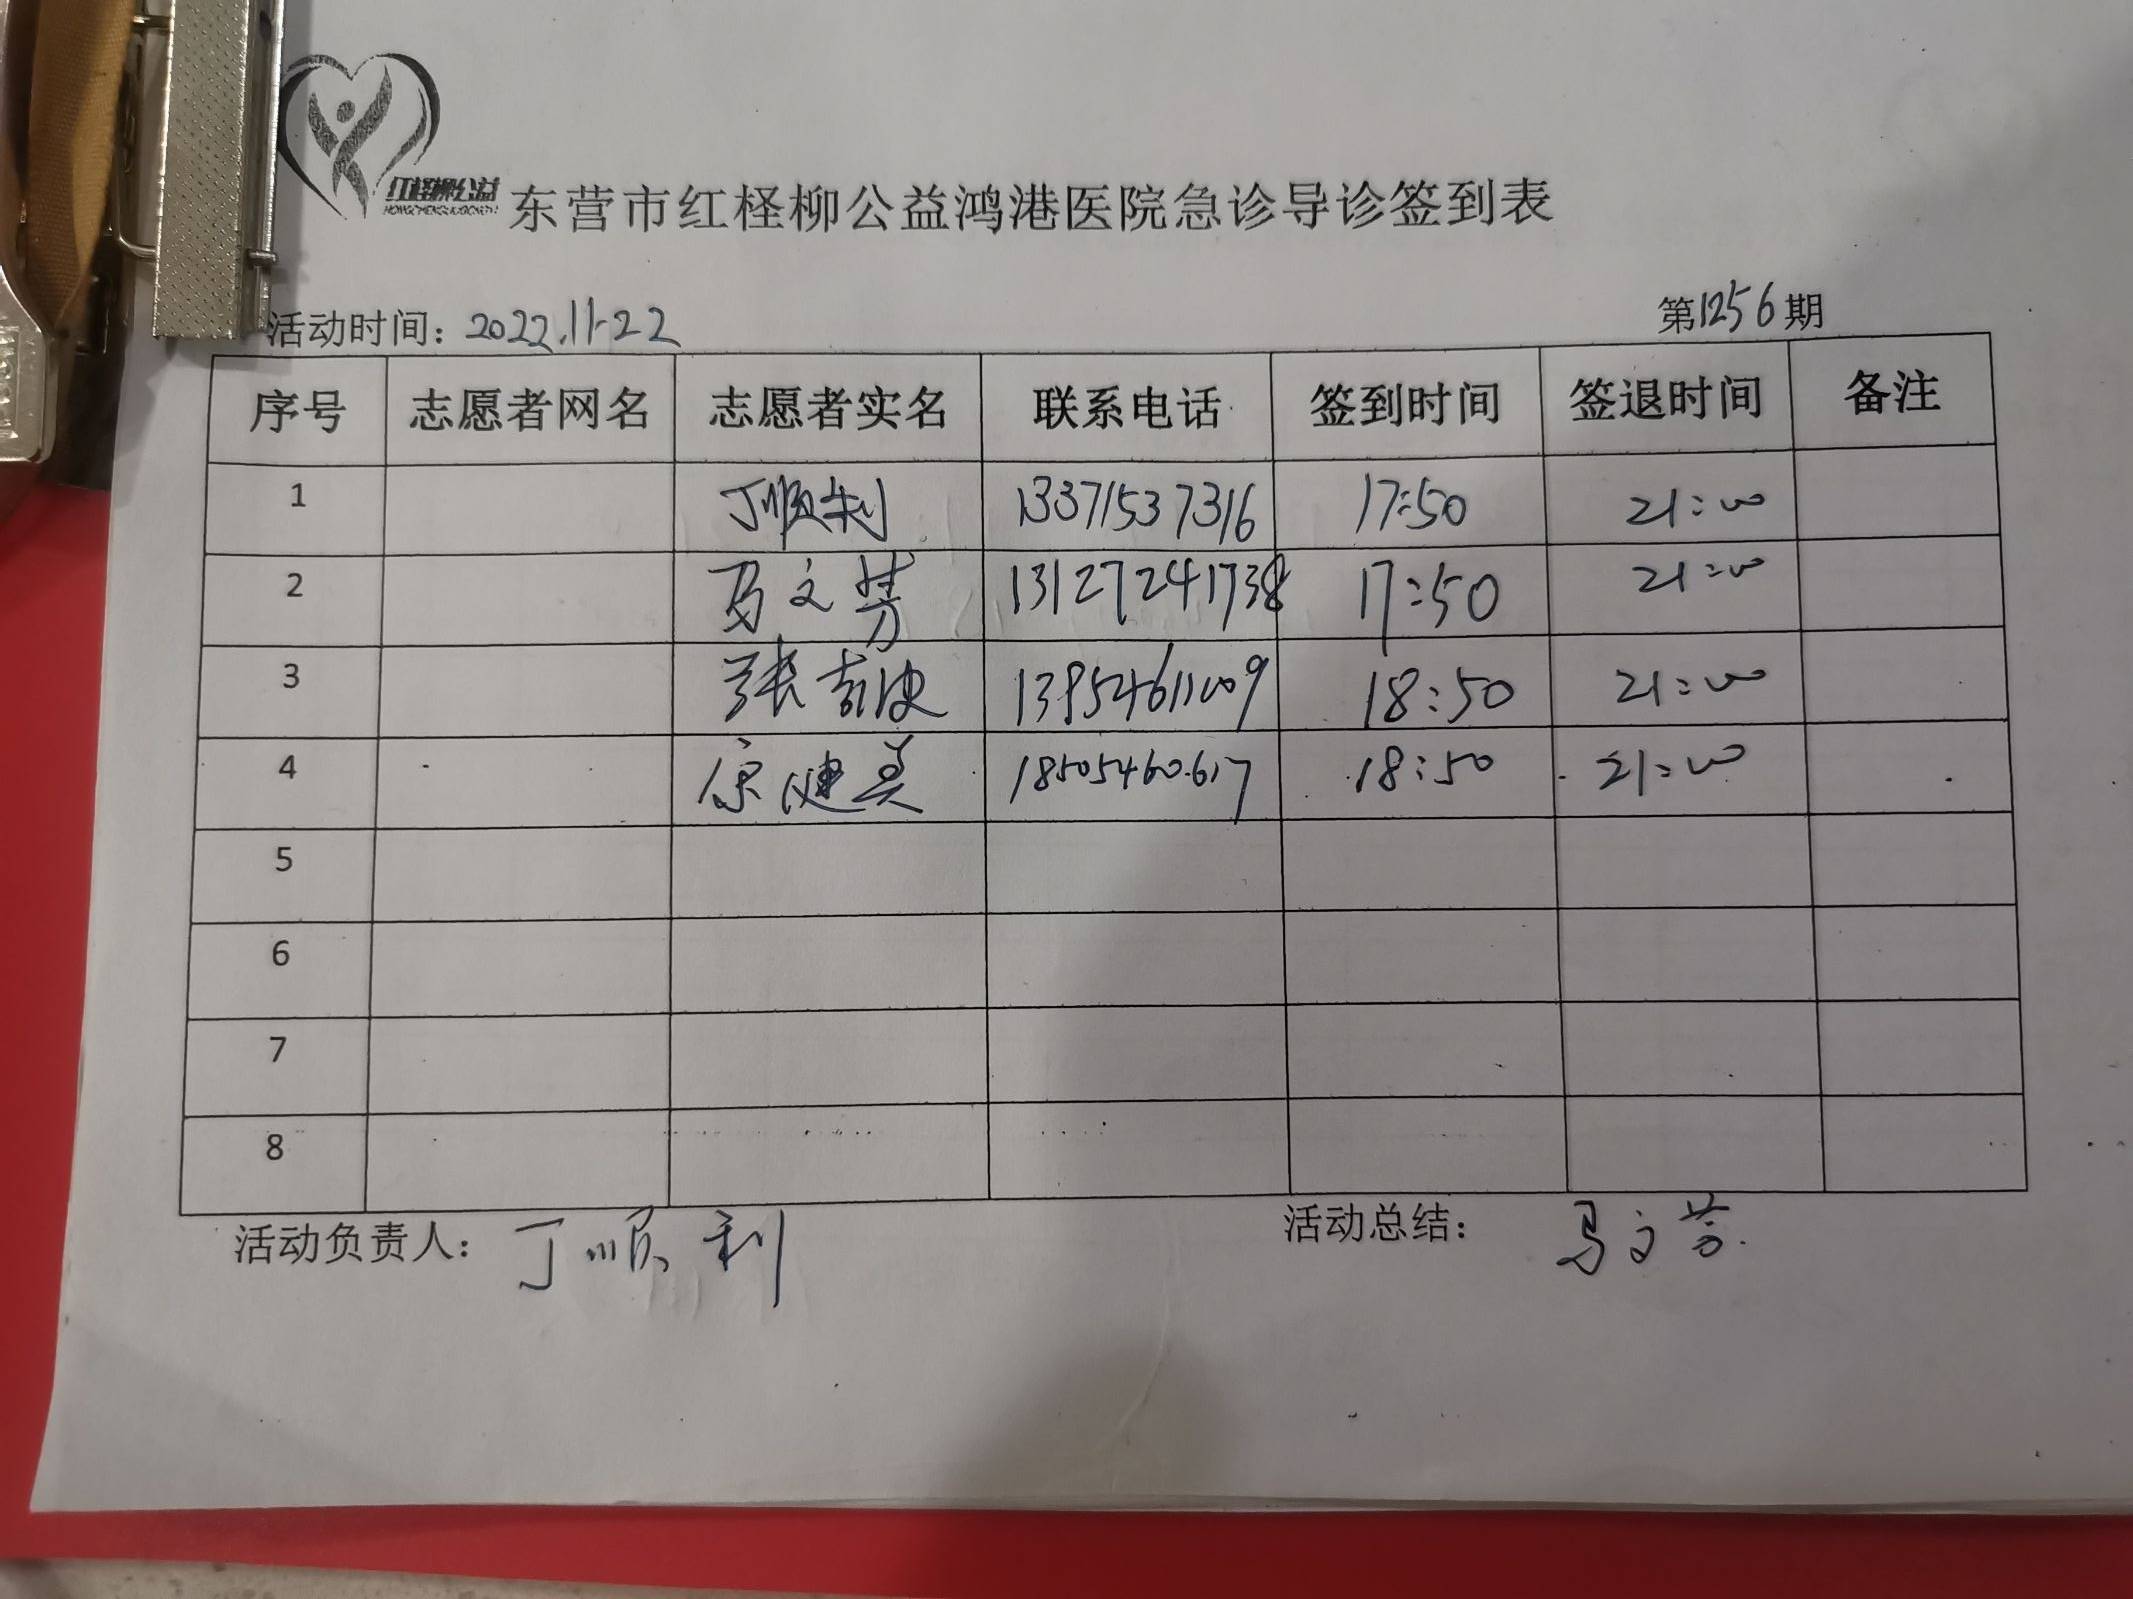 红柽柳公益
东营市红柽柳公益鸿港医院急诊导诊签到表
活动时间：2022.11-22 第1256期
序号 志愿者网名 志愿者实名 联系电话 签到时间 签退时间 备注
1 丁顺利 13371537316 17:50 21:00
2 马文芳 13127241738 17:50 21:00
3 张 13954611009 18:50 21:00
4 康健美 18505460617 18:50 21:00
5
6
7
8
活动负责人：丁顺利 活动总结：马文芳